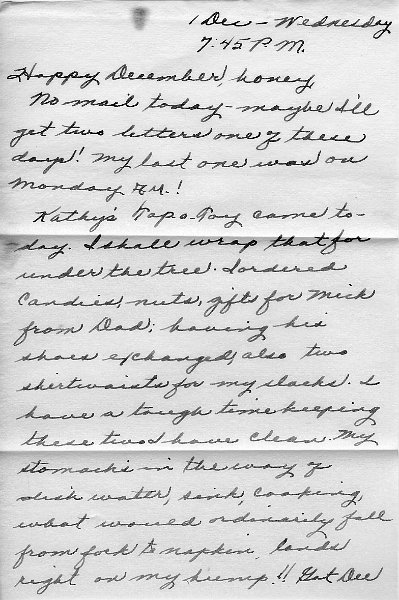 1 Dec - Wednesday
7:45 P.M.
Happy December, honey,
No mail today - maybe I'll
get two letters one of these
days! My last one was on
Monday A.M.!
Kathy's Tap-a-Toy came to-
day. I shall wrap that for
under the tree. I ordered
candies, nuts, gift for Mick
from Dad; having his
shoes exchanged, also two
shirtwaists for my slacks. I
have a tough time keeping
these two I have clean. My
stomach's in the way of
dish water, sink, cooking,
what would ordinarily fall
from fork to napkin, lands
right on my hump!! Got Dee